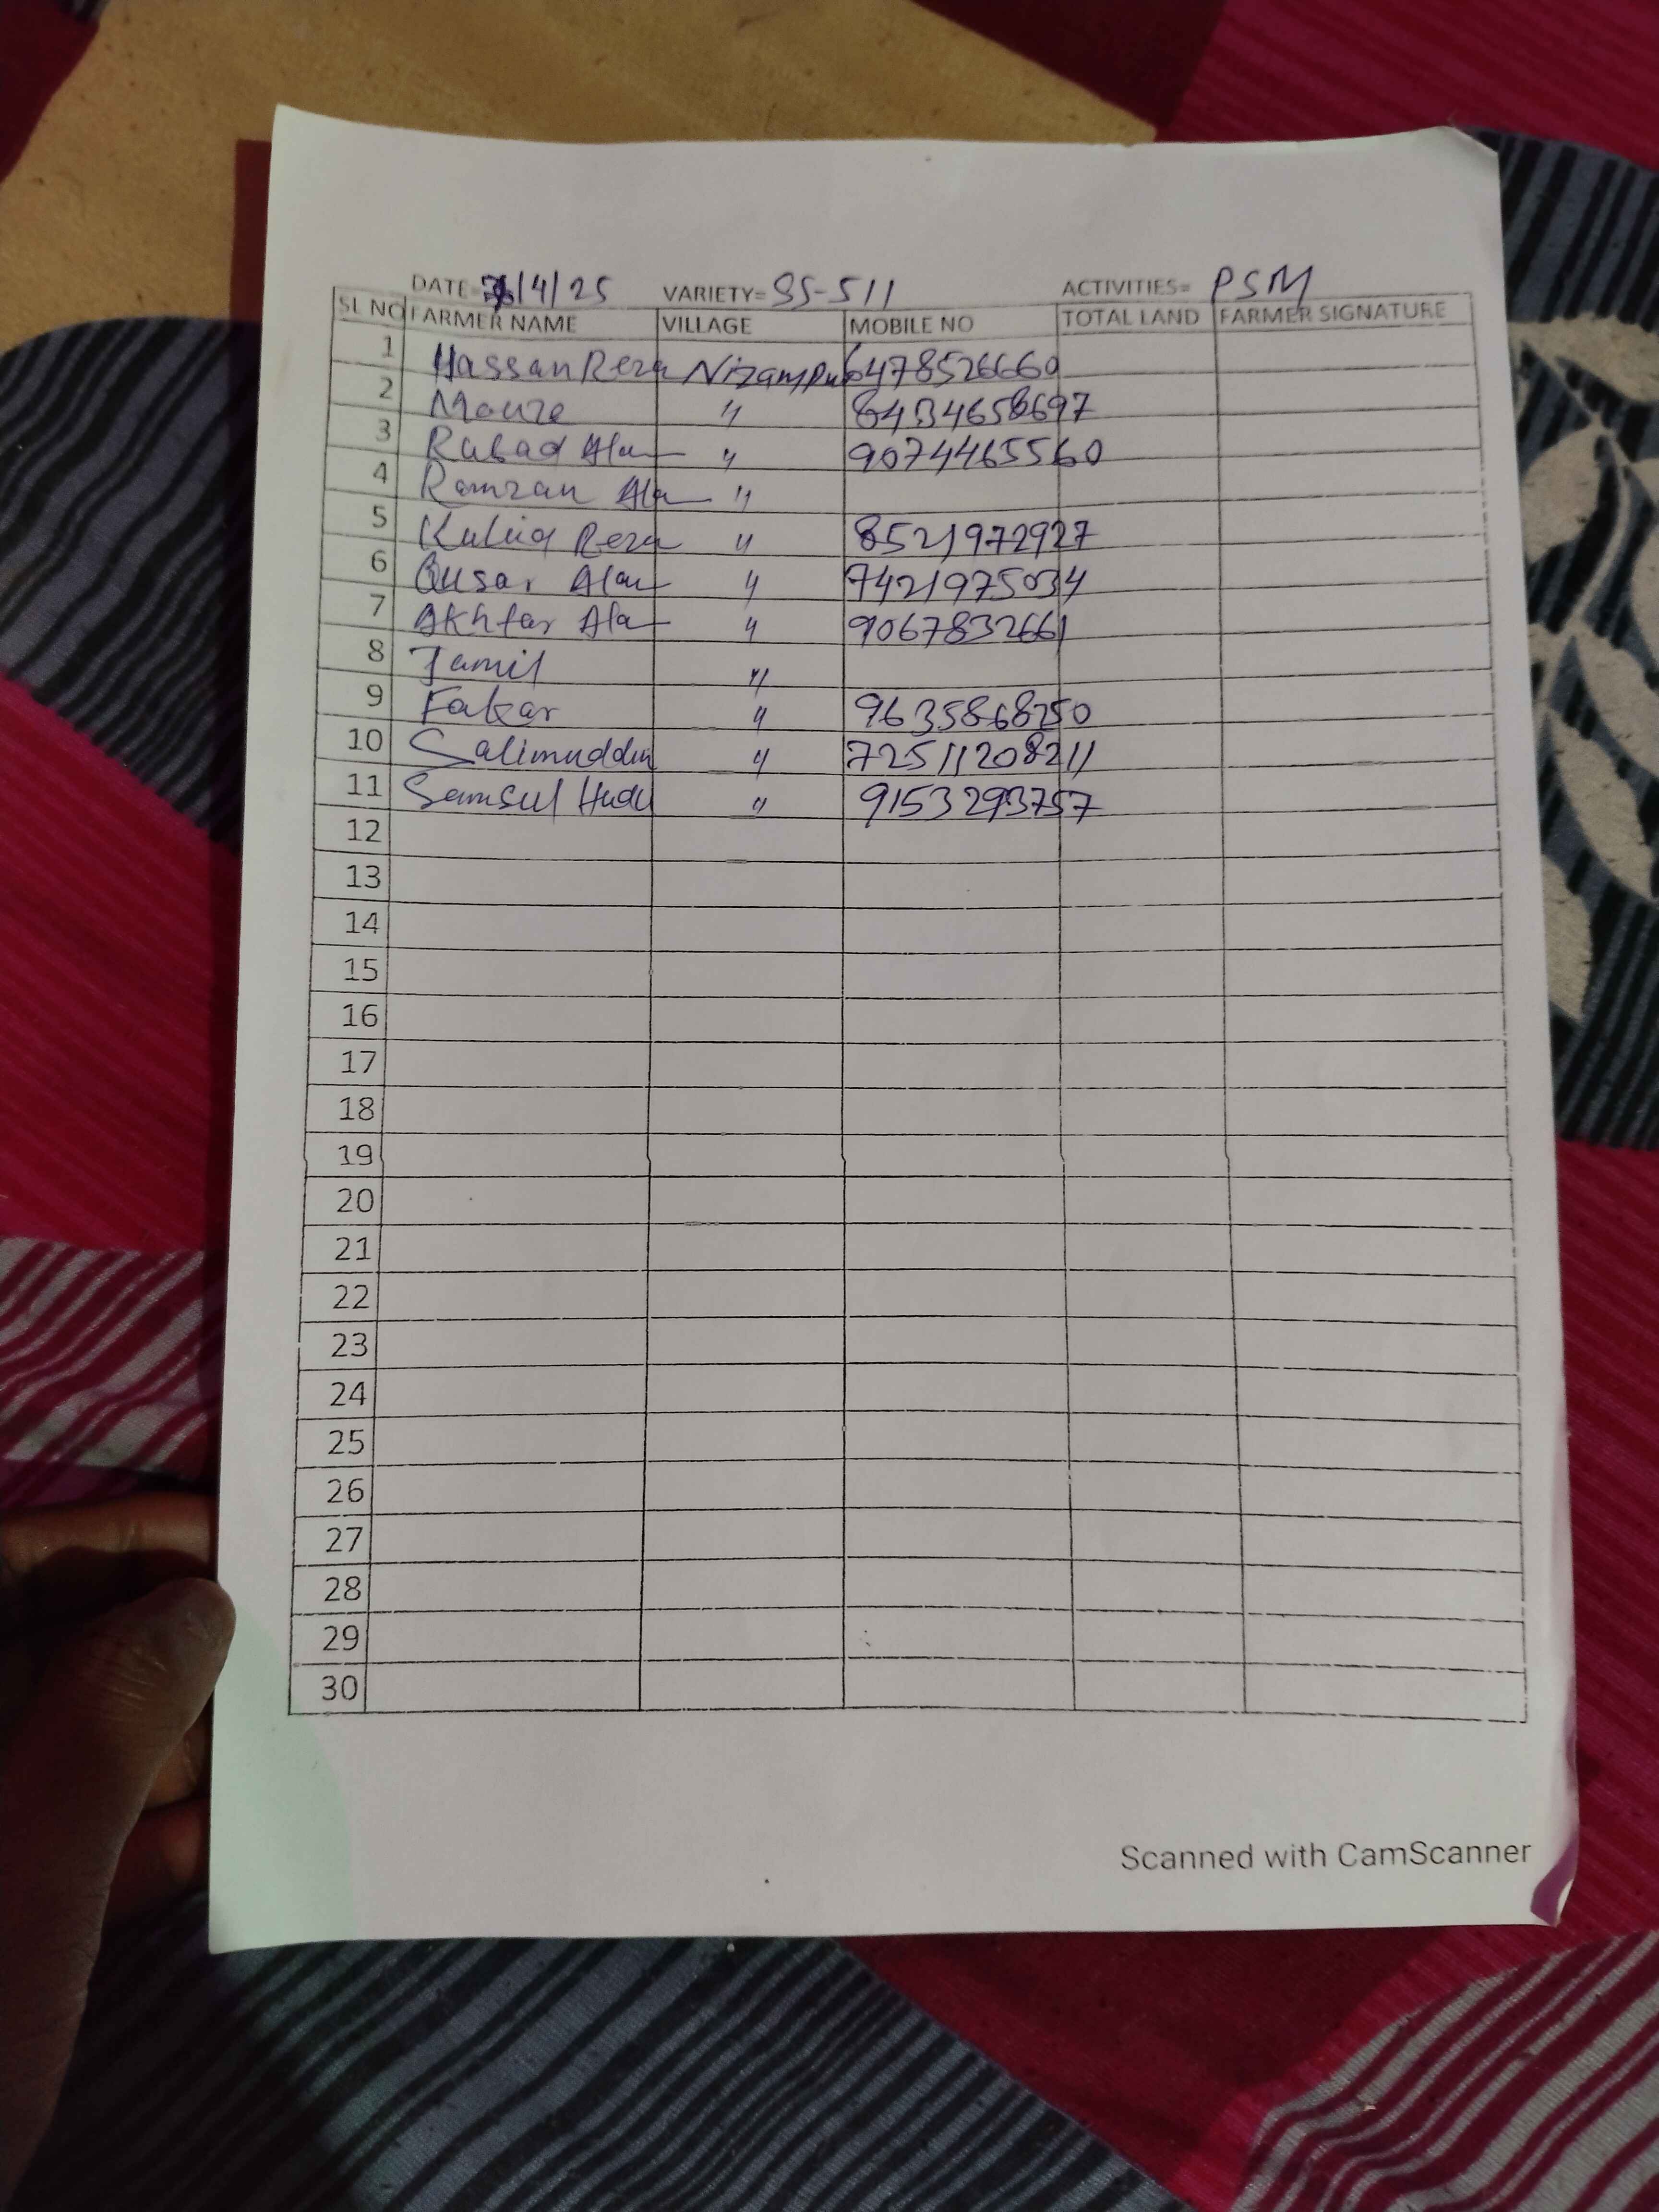 DATE= /4/25 VARIETY= SS-511 ACTIVITIES= PSM
SL NO FARMER NAME VILLAGE MOBILE NO TOTAL LAND FARMER SIGNATURE
1 Hassan Reza Nizampur 6478526660
2 〃 8434658697
3 Alam 〃 9074465560
4 Ramzan Alam 〃
5 Reza 〃 8521972927
6 Alam 〃 7421975034
7 Akhtar Alam 〃 9067832661
8 Jamil 〃
9 〃 9635868250
10 Salimuddin 〃 72511208211
11 Samsul Huda 〃 9153293757
12
13
14
15
16
17
18
19
20
21
22
23
24
25
26
27
28
29
30
Scanned with CamScanner